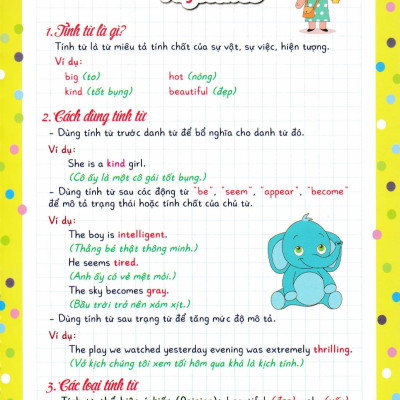 1. Tính từ là gì?
Tính từ là từ miêu tả tính chất của sự vật, sự việc, hiện tượng.
Ví dụ:
big (to) hot (nóng)
kind (tốt bụng) beautiful (đẹp)
2. Cách dùng tính từ
- Dùng tính từ trước danh từ để bổ nghĩa cho danh từ đó.
Ví dụ:
She is a kind girl.
(Cô ấy là một cô gái tốt bụng.)
- Dùng tính từ sau các động từ "be", "seem", "appear", "become"
để mô tả trạng thái hoặc tính chất của chủ từ.
Ví dụ:
The boy is intelligent.
(Thằng bé thật thông minh.)
He seems tired.
(Anh ấy có vẻ mệt mỏi.)
The sky becomes gray.
(Bầu trời trở nên xám xịt.)
- Dùng tính từ sau trạng từ để tăng mức độ mô tả.
Ví dụ:
The play we watched yesterday evening was extremely thrilling.
(Vở kịch chúng tôi xem tối hôm qua khá là kịch tính.)
3. Các loại tính từ